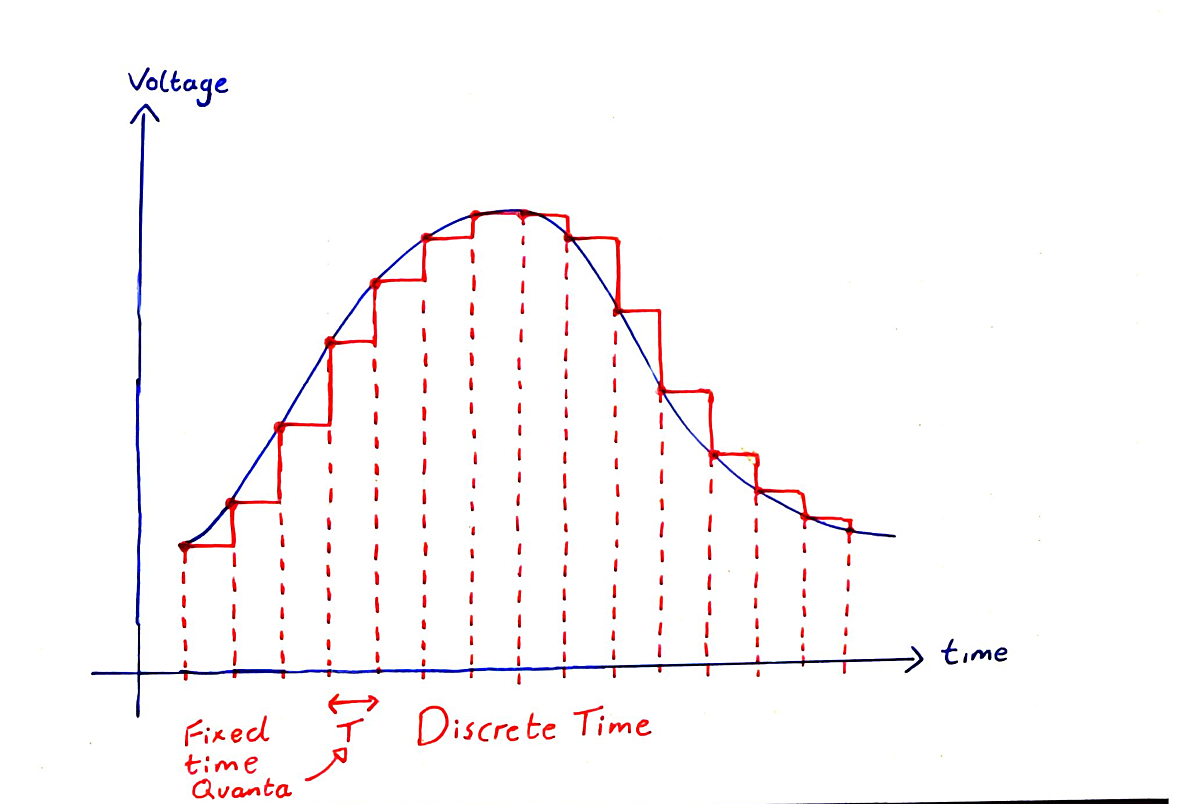 Voltage
time
Fixed
time
Quanta
T
Discrete Time